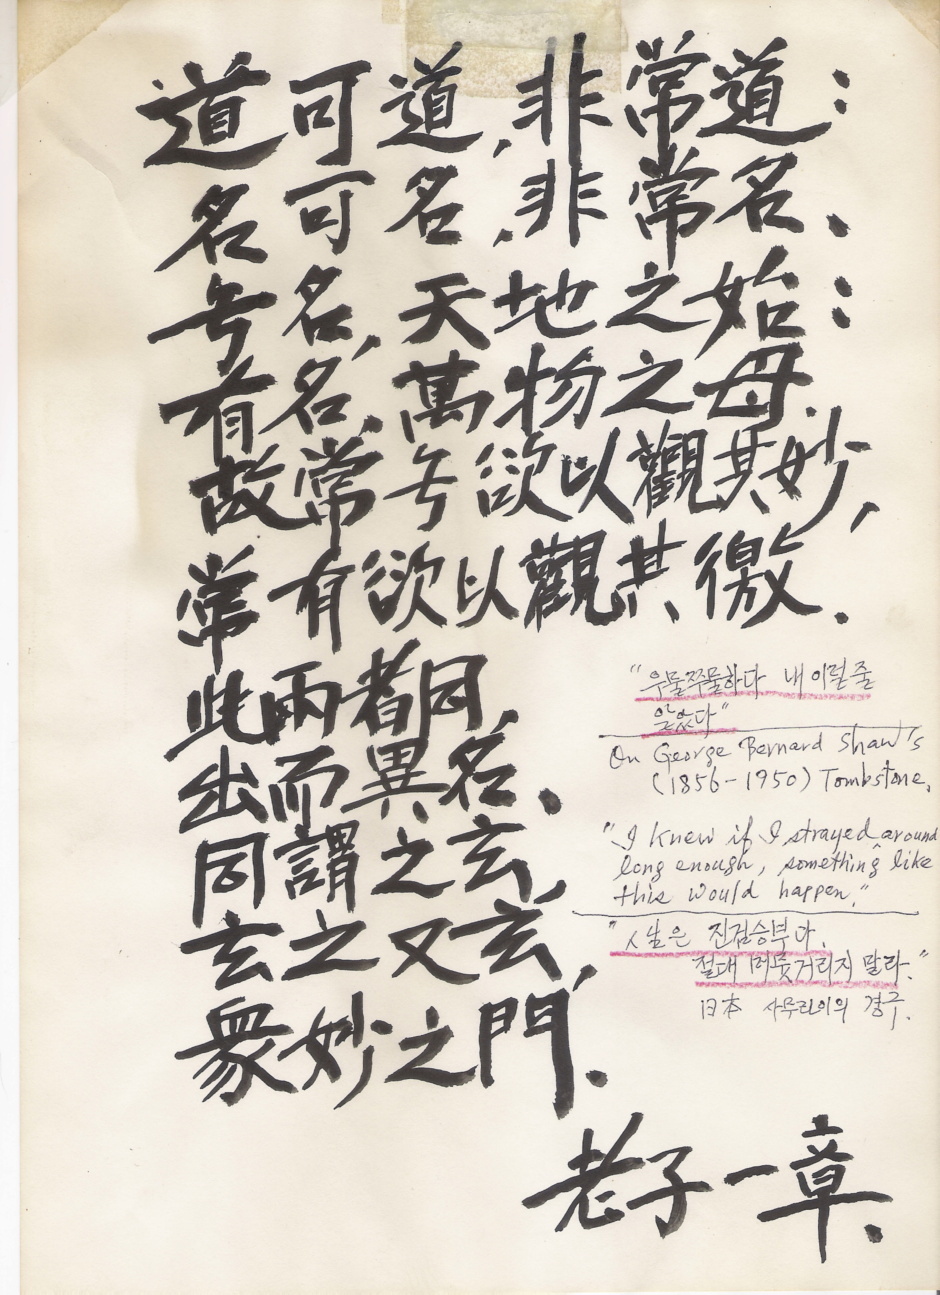 道可道,非常道:
名可名,非常名:
号名,天地之始:
有名,萬物之母.
故常号欲以觀其妙,
常有欲以觀其徼.
此兩者同,
出而異名.
同謂之玄,
玄之又玄,
衆妙之門.
老子一章.
"우물쭈물하다 내 이럴 줄
알았다"
On George Bernard Shaw's
(1856-1950) Tombstone.
"I knew if I strayed around
long enough, something like
this would happen."
"人生은 진검승부다.
절대 머뭇거리지 말라."
日本 사무라이의 경구.